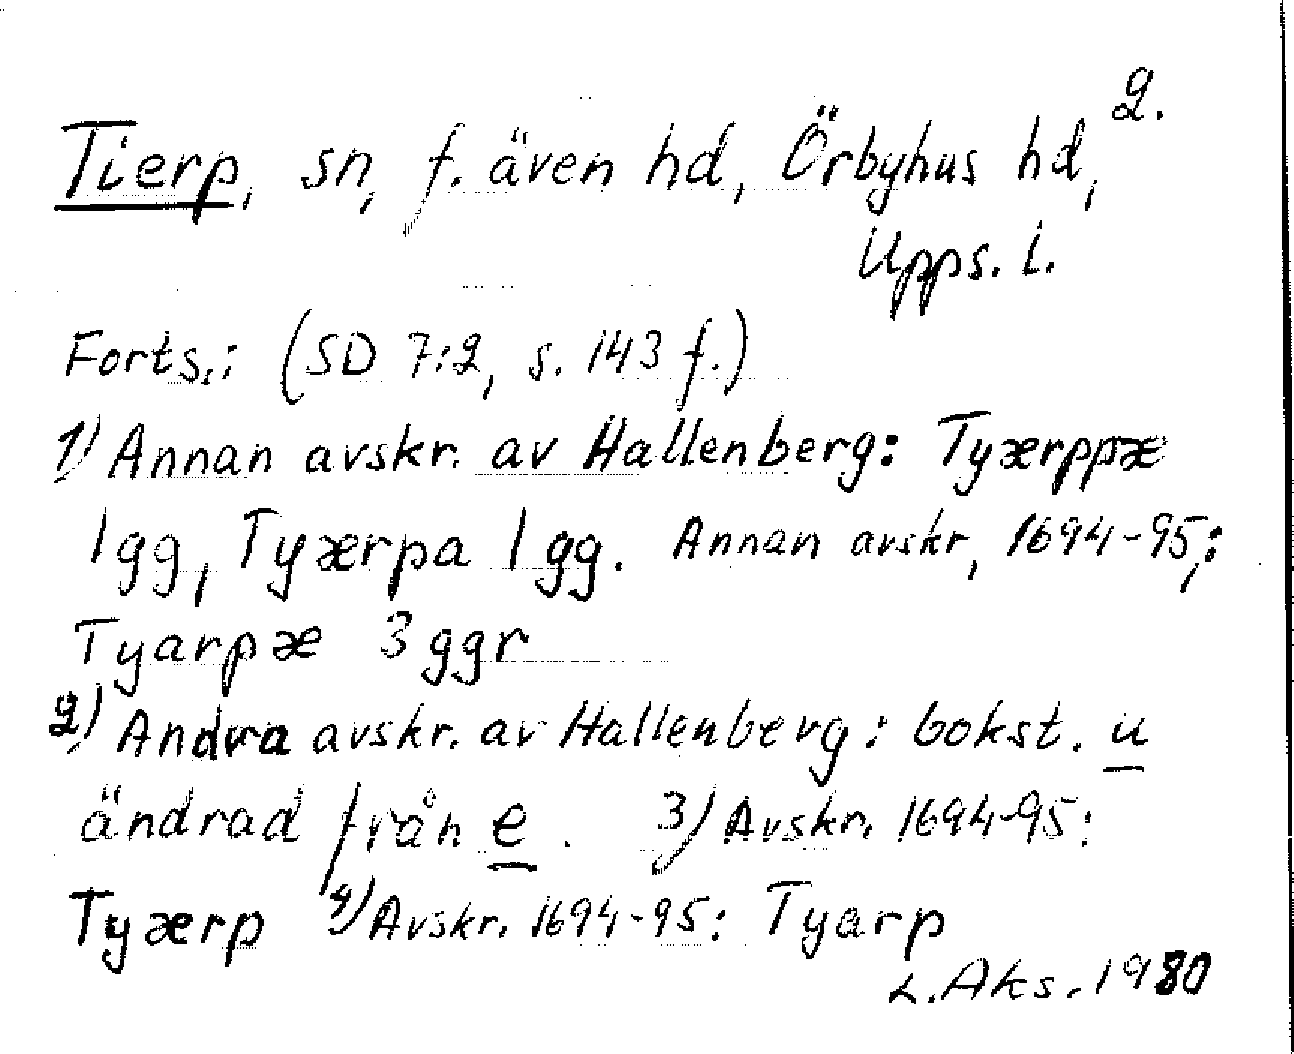 2.
Tierp, sn, f. även hd, Örbyhus hd,
Upps. l.
Forts.: (SD 7:2, s. 143 f.)
1) Annan avskr. av Hallenberg: Tyærppæ
1 gg, Tyærpa 1 gg. Annan avskr, 1694-95,:
Tyarpæ 3 ggr
2) Andra avskr. av Hallenberg: bokst. u
ändrad från e. 3) Avskr. 1694-95:
Tyærp 4) Avskr. 1694-95: Tyarp
L. Aks. 1980